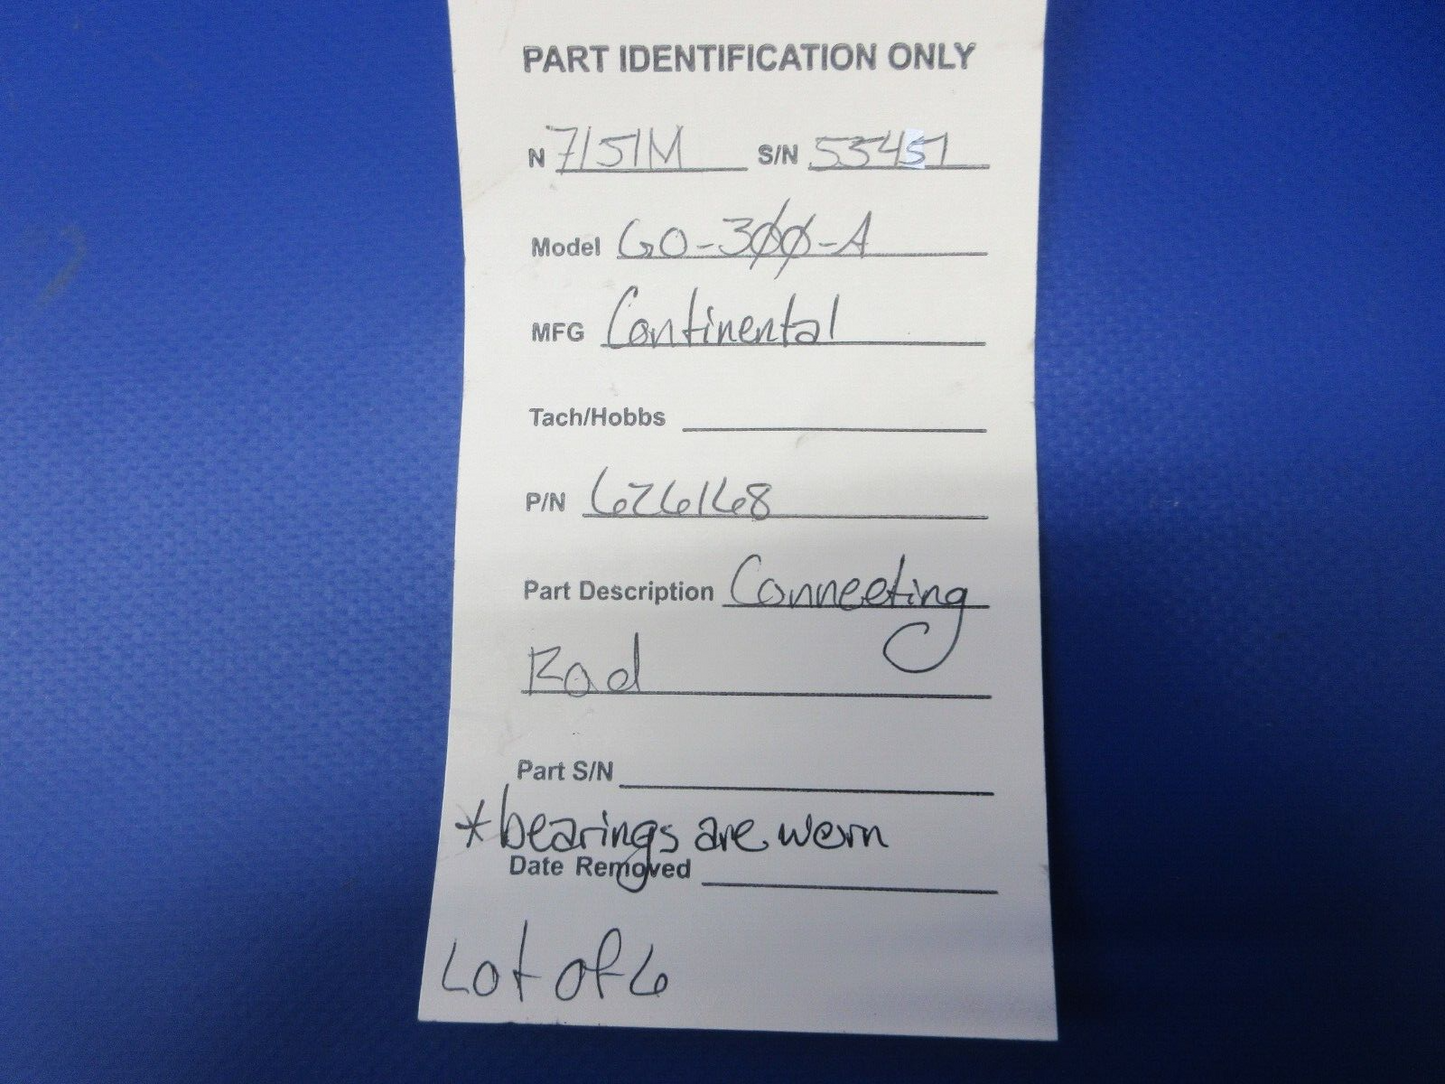 PART IDENTIFICATION ONLY
N 7151M S/N 553451
Model GO-300-A
MFG Continental
Tach/Hobbs
P/N 626168
Part Description Connecting
Rod
Part S/N
*bearings are worn
Date Removed
Lot of 6